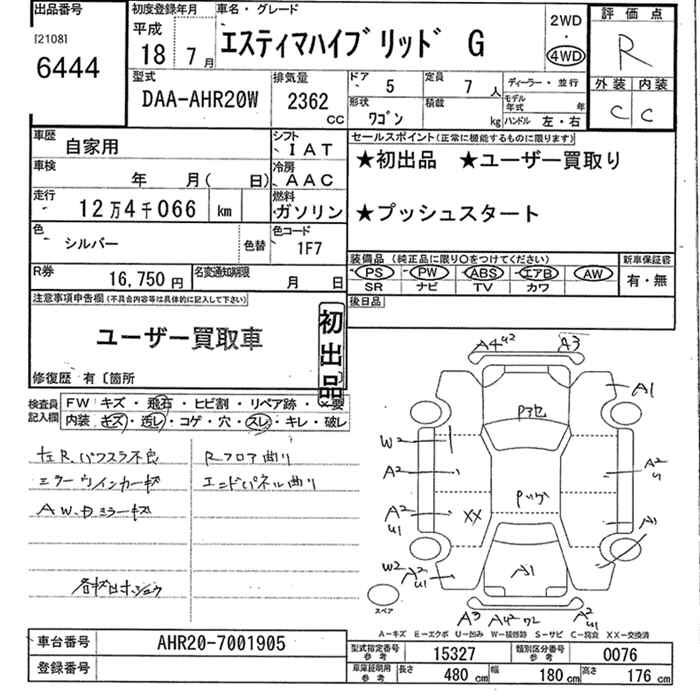 出品番号 初度登録年月 車名・グレード 2WD 評価点
[2108] 平成
6444 18年 7月 エスティマハイブリッド G ・ 4WD R
型式 排気量 ドア 5 定員 7人 ディーラー・並行 外装 内装
DAA-AHR20W 2362 CC 形状 ワゴン 積載 kg モデル年式 年 C C
ハンドル 左・右
車歴 自家用 シフト IAT セールスポイント(正常に機能するものに限ります)
車検 年 月( 日) 冷房 AAC ★初出品 ★ユーザー買取り
走行 12万4千066 km 燃料 ガソリン ★プッシュスタート
色 シルバー 色替 色コード 1F7
装備品(純正品に限り○をつけてください) 新車保証書
PS PW ABS エアB AW 有・無
SR ナビ TV カワ
R券 16,750円 名変通知期限 月 日 後日品
注意事項申告欄(不具合内容等は具体的に記入して下さい)
ユーザー買取車 初出品
修復歴 有〔箇所
検査員記入欄 FW キズ・飛石・ヒビ割・リペア跡・×要
内装 キズ・汚レ・コゲ・穴・スレ・キレ・破レ
左R.パワスラ不良 Rフロア曲り
ミラーウインカーキズ エンドパネル曲り
AW.Dミラーキズ
A4 U2 A3
A1
Pアセ
W2
A2 A2 U
Pルーフ
A2 U1 XX A1
W2 A2 U1 A1
スペア
A3 A4 U2 W2 A2 U1
A-キズ E-エクボ U-凹み W-補修跡 S-サビ C-腐食 XX-交換済
車台番号 AHR20-7001905
登録番号
型式指定番号 参考 15327 類別区分番号 参考 0076
車庫証明用 参考 長さ 480cm 幅 180cm 高さ 176cm